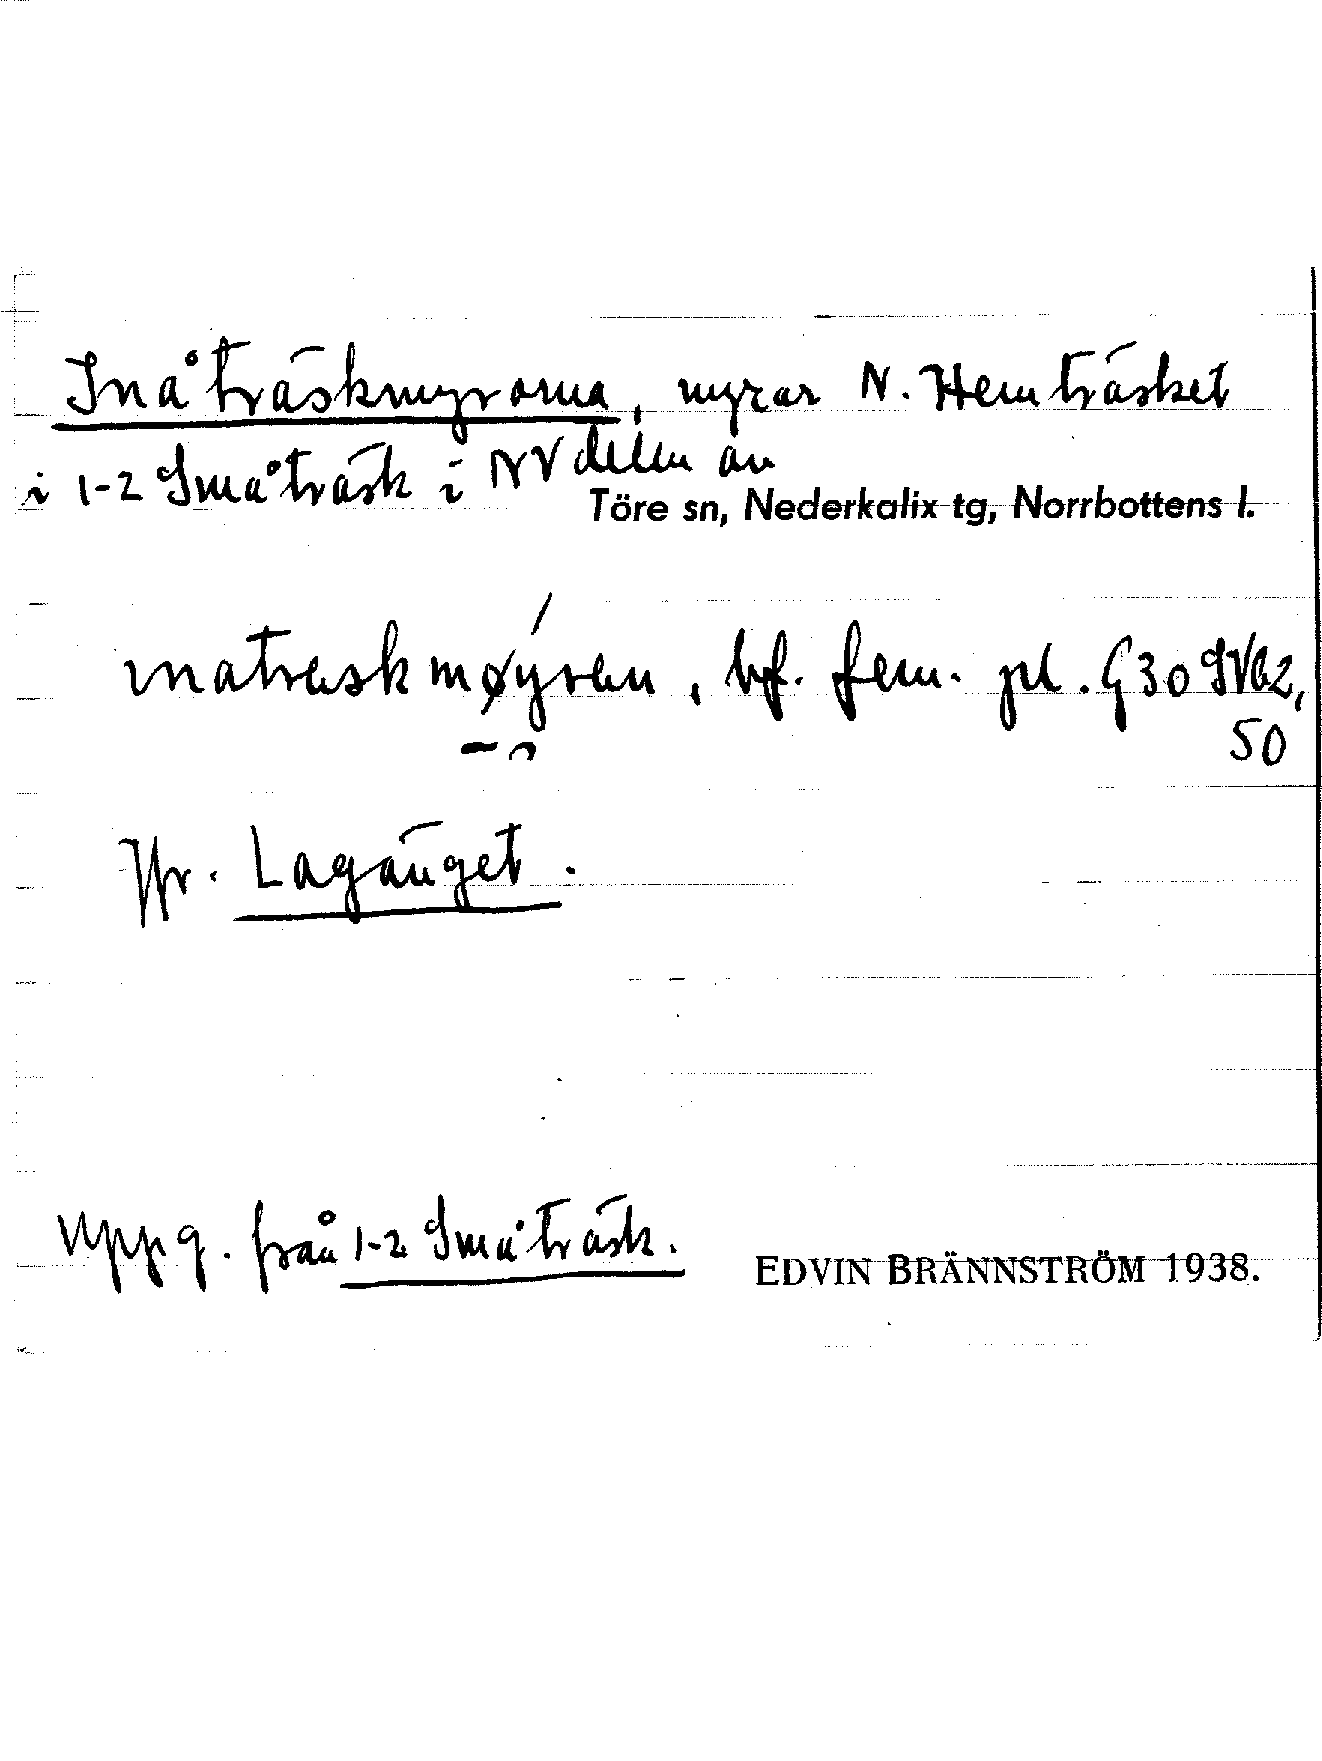 Småträskmyrorna, myrar N. Hemträsket
i 1-2 Småträsk i NV delen av
Töre sn, Nederkalix tg, Norrbottens l.
bf. fem. pl. G30 SV62,
50
Jfr. Lagänget.
Uppg. från 1-2 Småträsk.
EDVIN BRÄNNSTRÖM 1938.